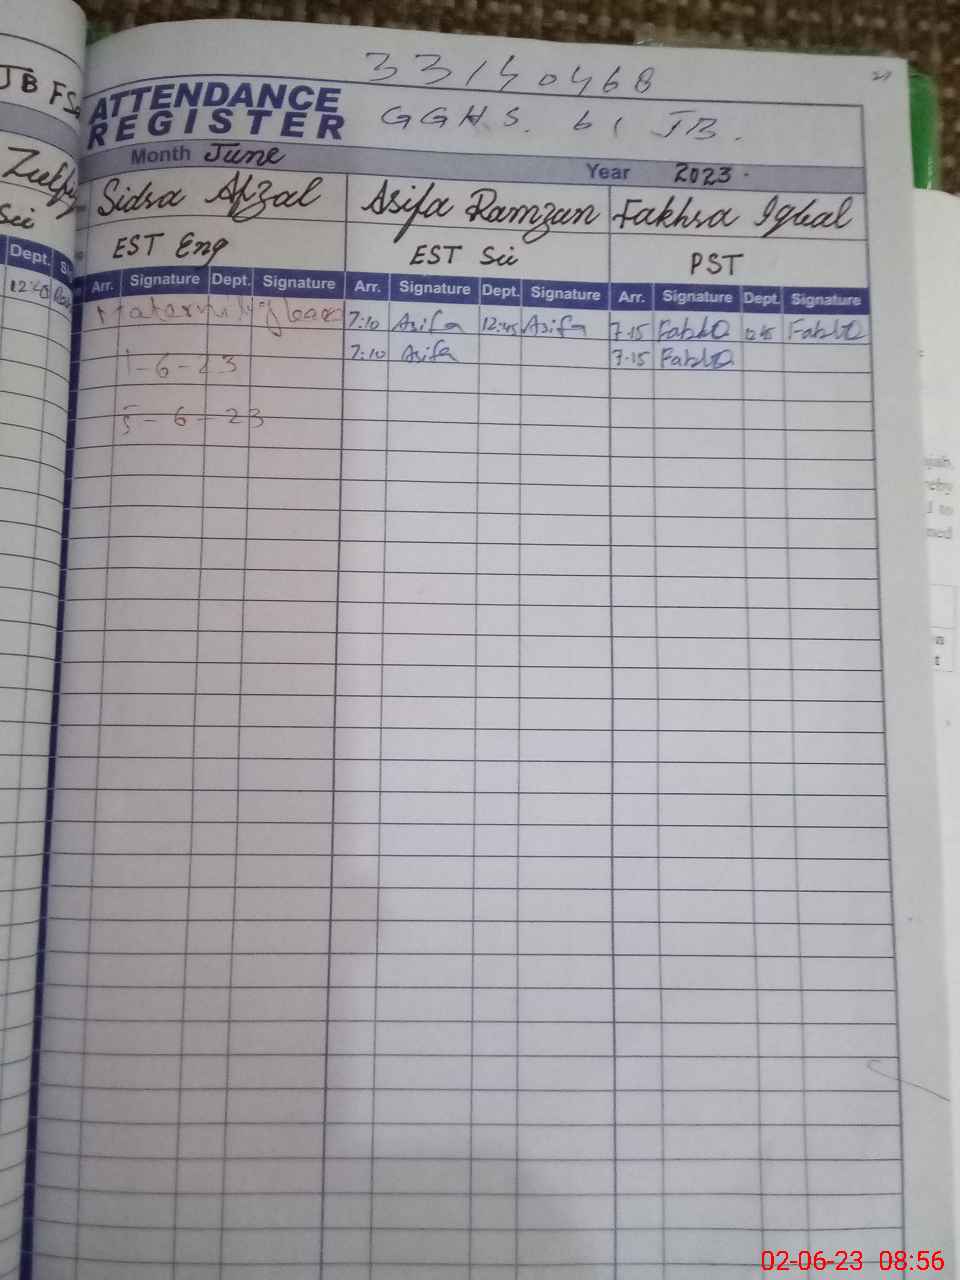 JB FS
33140468
ATTENDANCE
REGISTER
GGHS. 61 JB.
Month June
Year 2023.
Sidra Afzal
Asifa Ramzan
Fakhra Iqbal
Sci
EST Eng
EST Sci
PST
Dept.
Arr. Signature Dept. Signature Arr. Signature Dept. Signature Arr. Signature Dept. Signature
12:45
Maternity leave 7:10 Asifa 12:45 Asifa 7:15
7:10 Asifa 7:15
1-6-23
5-6-23
02-06-23 08:56